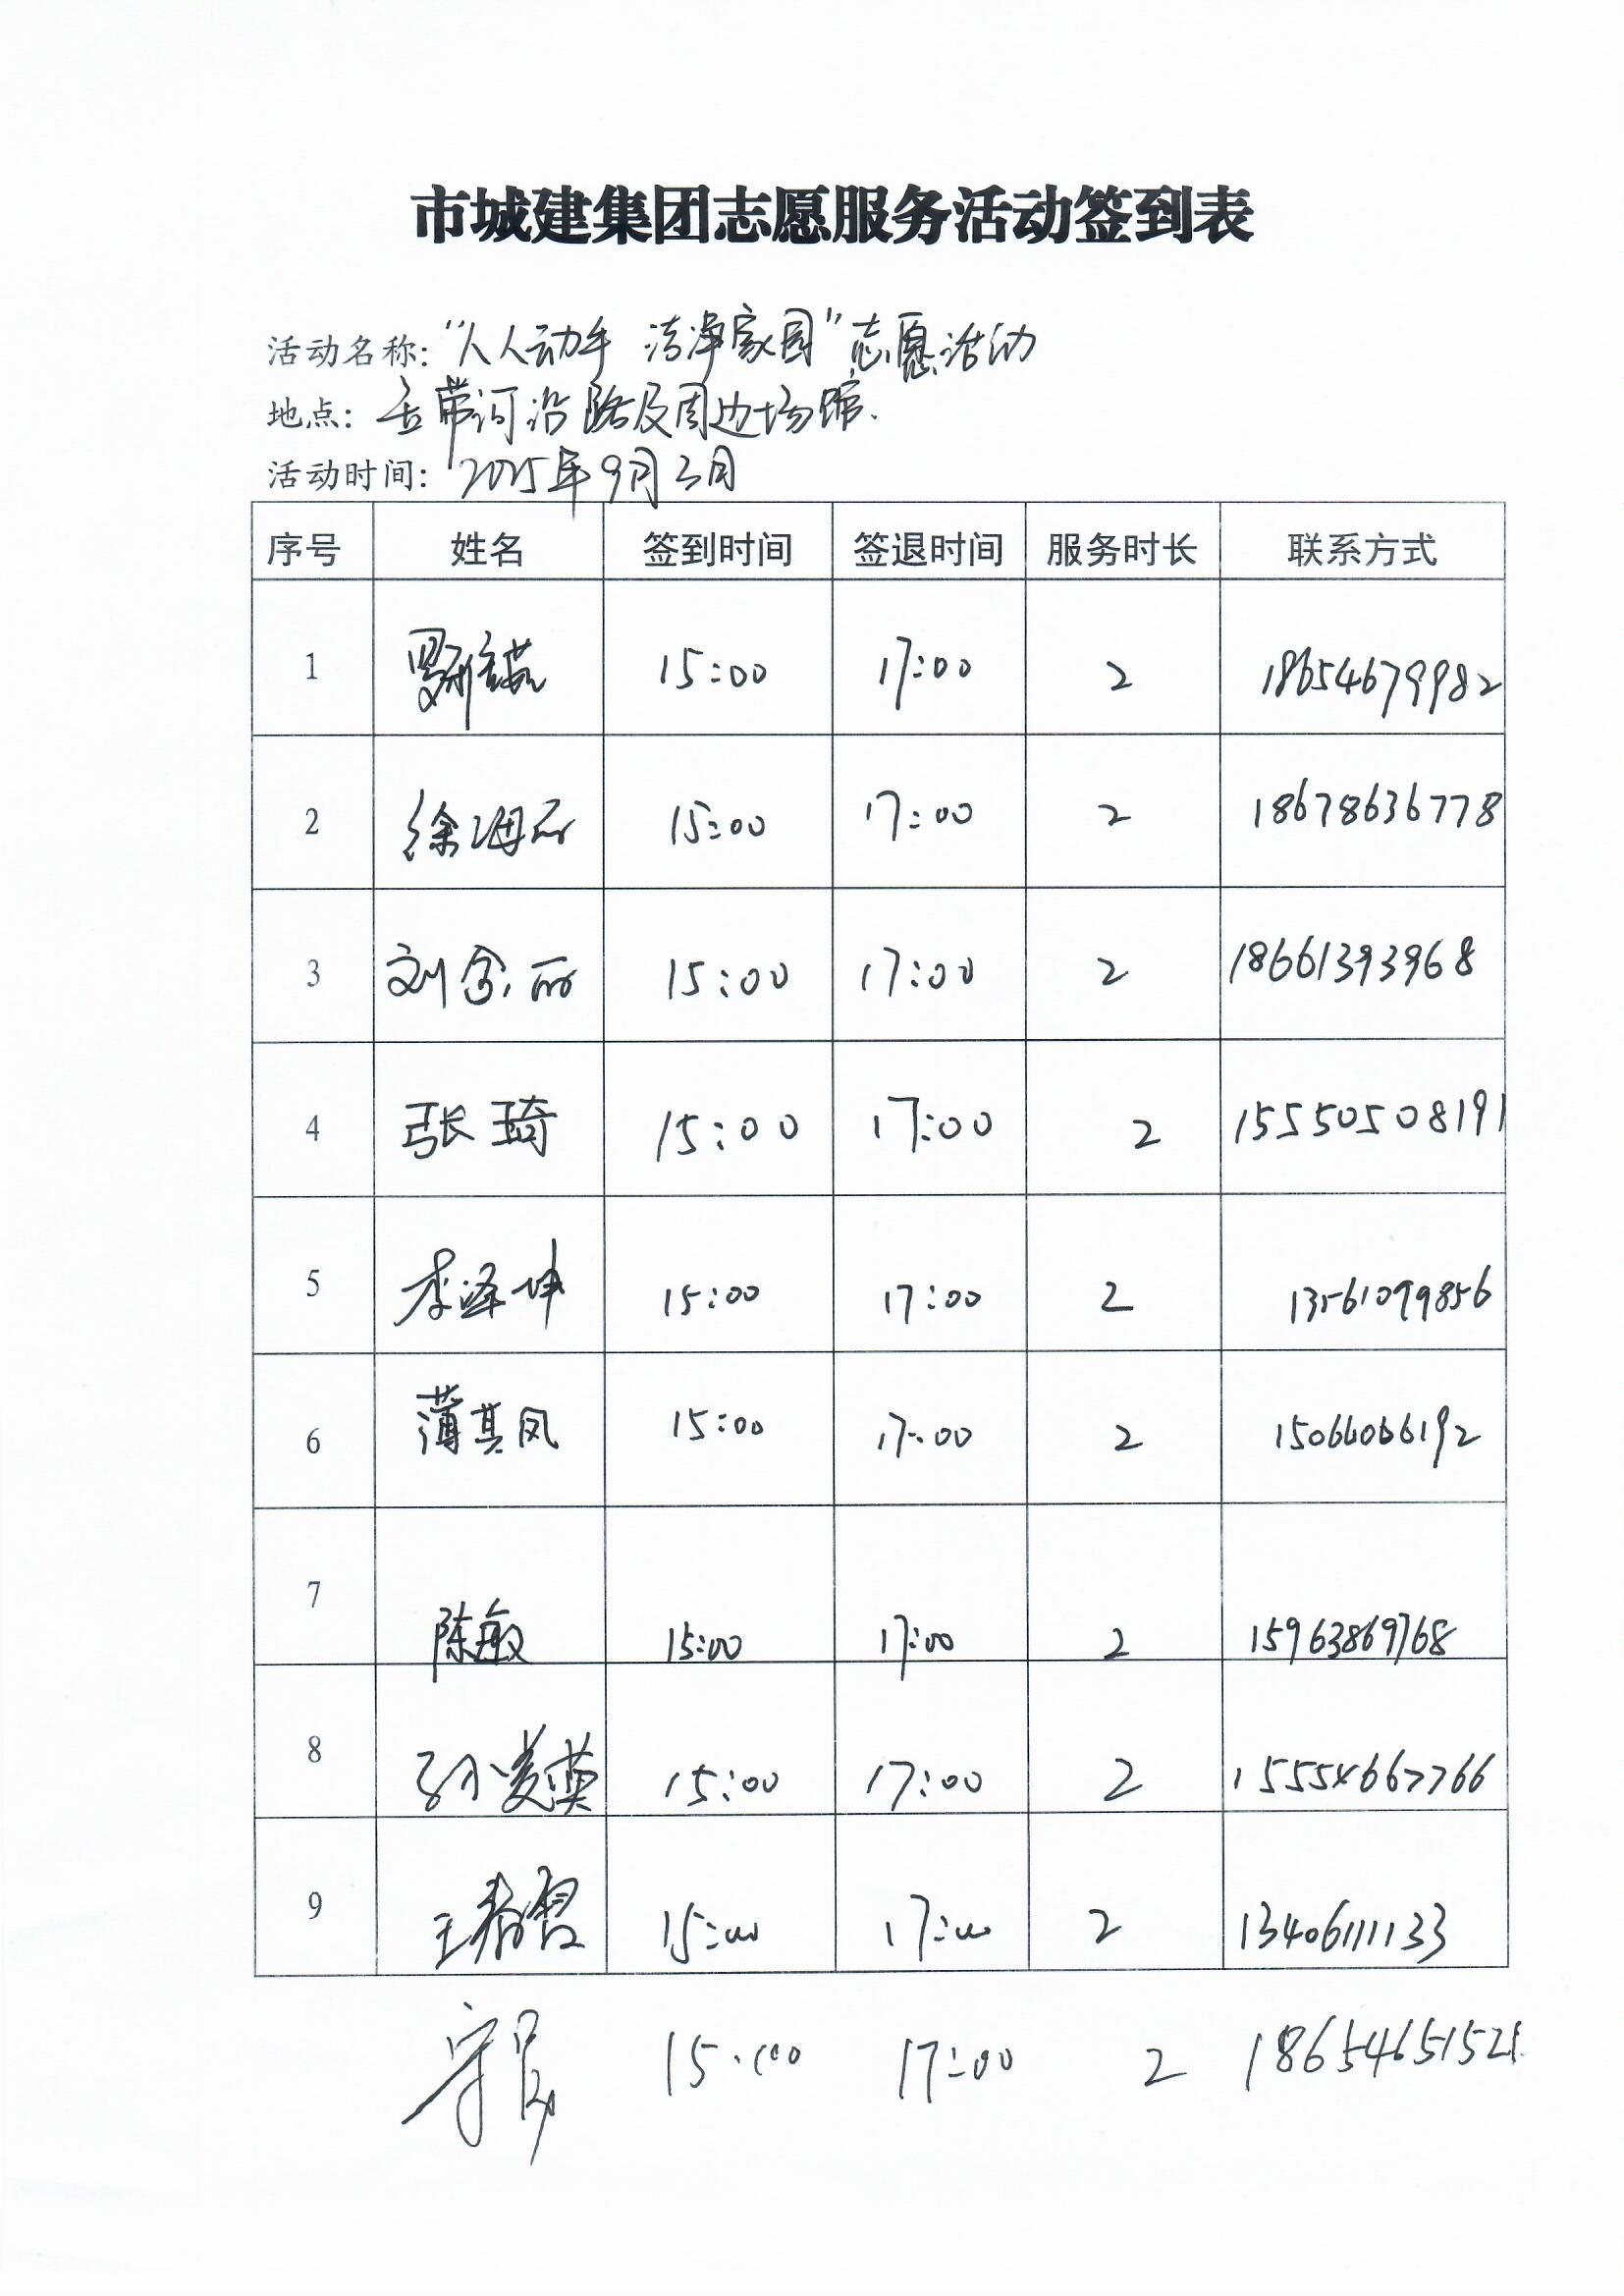 市城建集团志愿服务活动签到表
活动名称：“人人动手 洁净家园”志愿活动
地点：玉带河沿路及周边场馆.
活动时间：2025年9月3日
序号 姓名 签到时间 签退时间 服务时长 联系方式
1 15:00 17:00 2 18654679982
2 徐海丽 15:00 17:00 2 18678636778
3 刘念丽 15:00 17:00 2 18661393968
4 张琦 15:00 17:00 2 15550508191
5 李泽坤 15:00 17:00 2 13561099856
6 薄其凤 15:00 17:00 2 15064066192
7 陈敏 15:00 17:00 2 15963869768
8 孙 15:00 17:00 2 15554667766
9 王 15:00 17:00 2 13406111133
15:00 17:00 2 18654651521